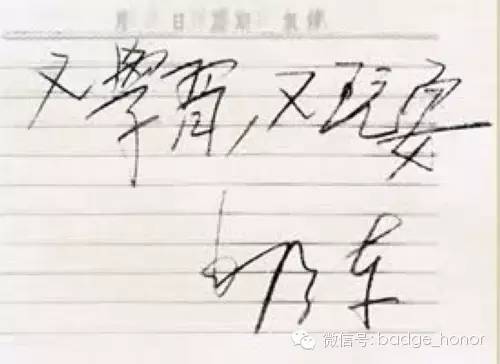 月 日 星期 氣候
又學習,又玩耍
微信号: badge_honor